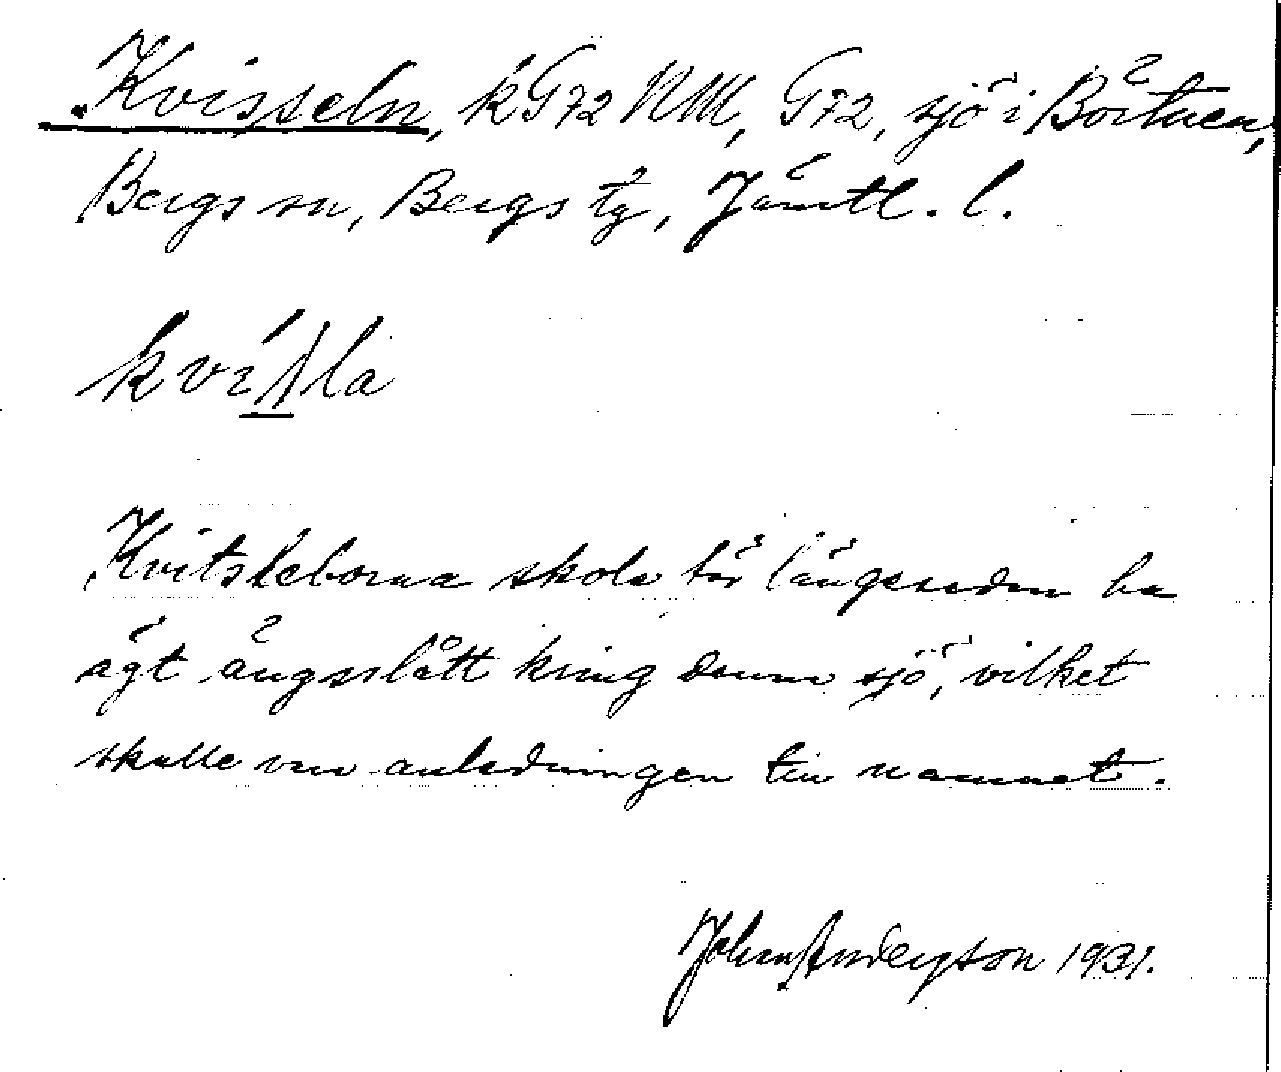 Kvisseln, k G72 NM, G72, sjö i Börtnen,
Bergs sn, Bergs tg, Jämtl. l.
Kvitsleborna skola för längesedan ha
ägt ängsslått kring denna sjö, vilket
skulle vara anledningen till namnet.
Johan Anderson 1931.